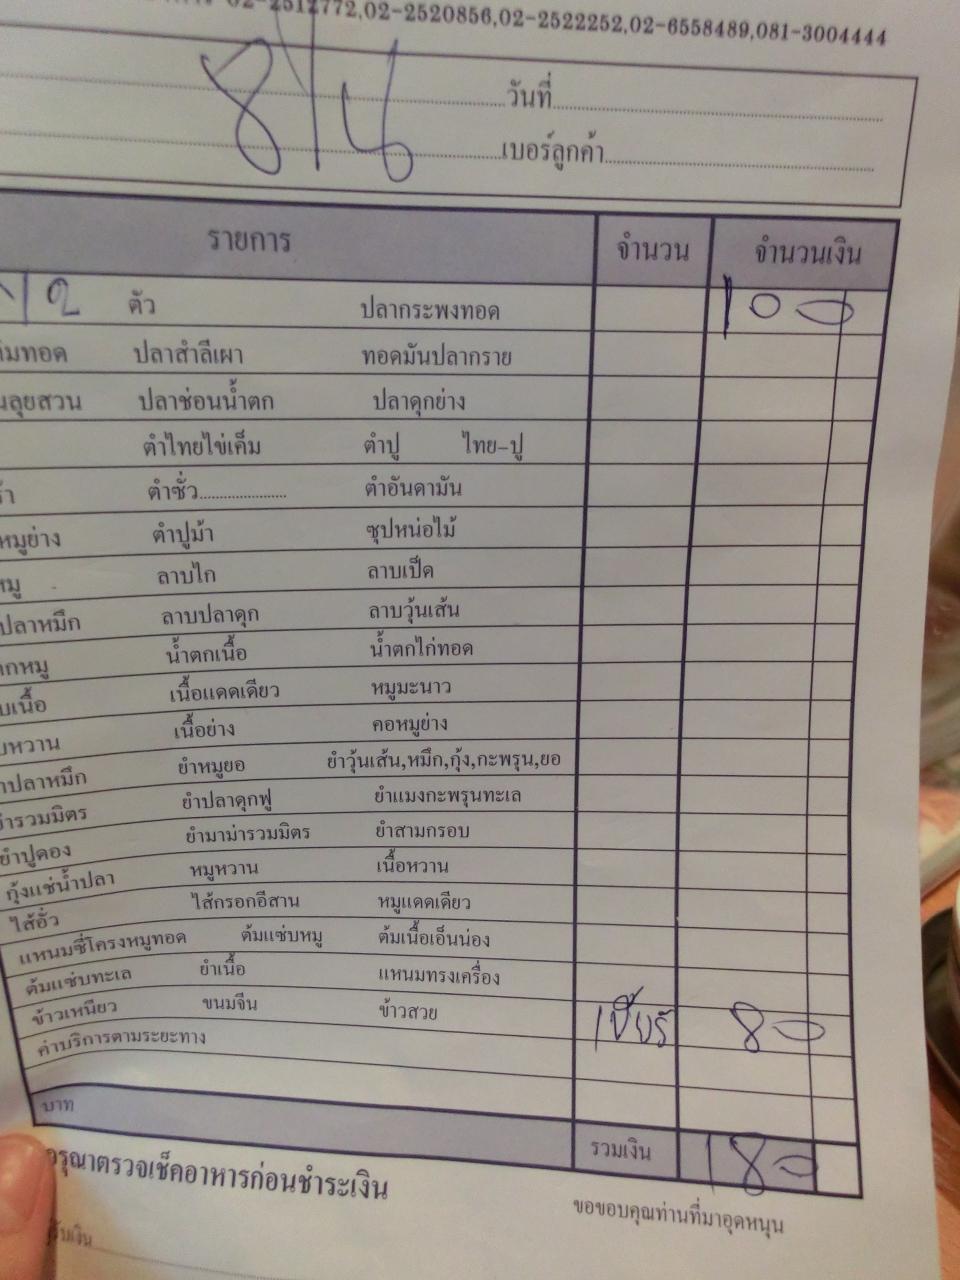 02-2512772,02-2520856,02-2522252,02-6558489,081-3004444
วันที่
8/4
เบอร์ลูกค้า
รายการ จำนวน จำนวนเงิน
ตัว ปลากระพงทอด 100
ปลาสำลีเผา ทอดมันปลากราย
ปลาช่อนน้ำตก ปลาดุกย่าง
ตำไทยไข่เค็ม ตำปู ไทย-ปู
ตำซั่ว ตำอันดามัน
หมูย่าง ตำปูม้า ซุปหน่อไม้
ลาบไก่ ลาบเป็ด
ปลาหมึก ลาบปลาดุก ลาบวุ้นเส้น
น้ำตกเนื้อ น้ำตกไก่ทอด
เนื้อแดดเดียว หมูมะนาว
เนื้อย่าง คอหมูย่าง
ยำหมูยอ ยำวุ้นเส้น,หมึก,กุ้ง,กะพรุน,ยอ
ยำรวมมิตร ยำปลาดุกฟู ยำแมงกะพรุนทะเล
ยำปูดอง ยำมาม่ารวมมิตร ยำสามกรอบ
กุ้งแช่น้ำปลา หมูหวาน เนื้อหวาน
ไส้อั่ว ไส้กรอกอีสาน หมูแดดเดียว
แหนมซี่โครงหมูทอด ต้มแซ่บหมู ต้มเนื้อเอ็นน่อง
ต้มแซ่บทะเล ยำเนื้อ แหนมทรงเครื่อง
ข้าวเหนียว ขนมจีน ข้าวสวย เบียร์ 80
ค่าบริการตามระยะทาง
บาท รวมเงิน 180
กรุณาตรวจเช็คอาหารก่อนชำระเงิน
ขอขอบคุณท่านที่มาอุดหนุน